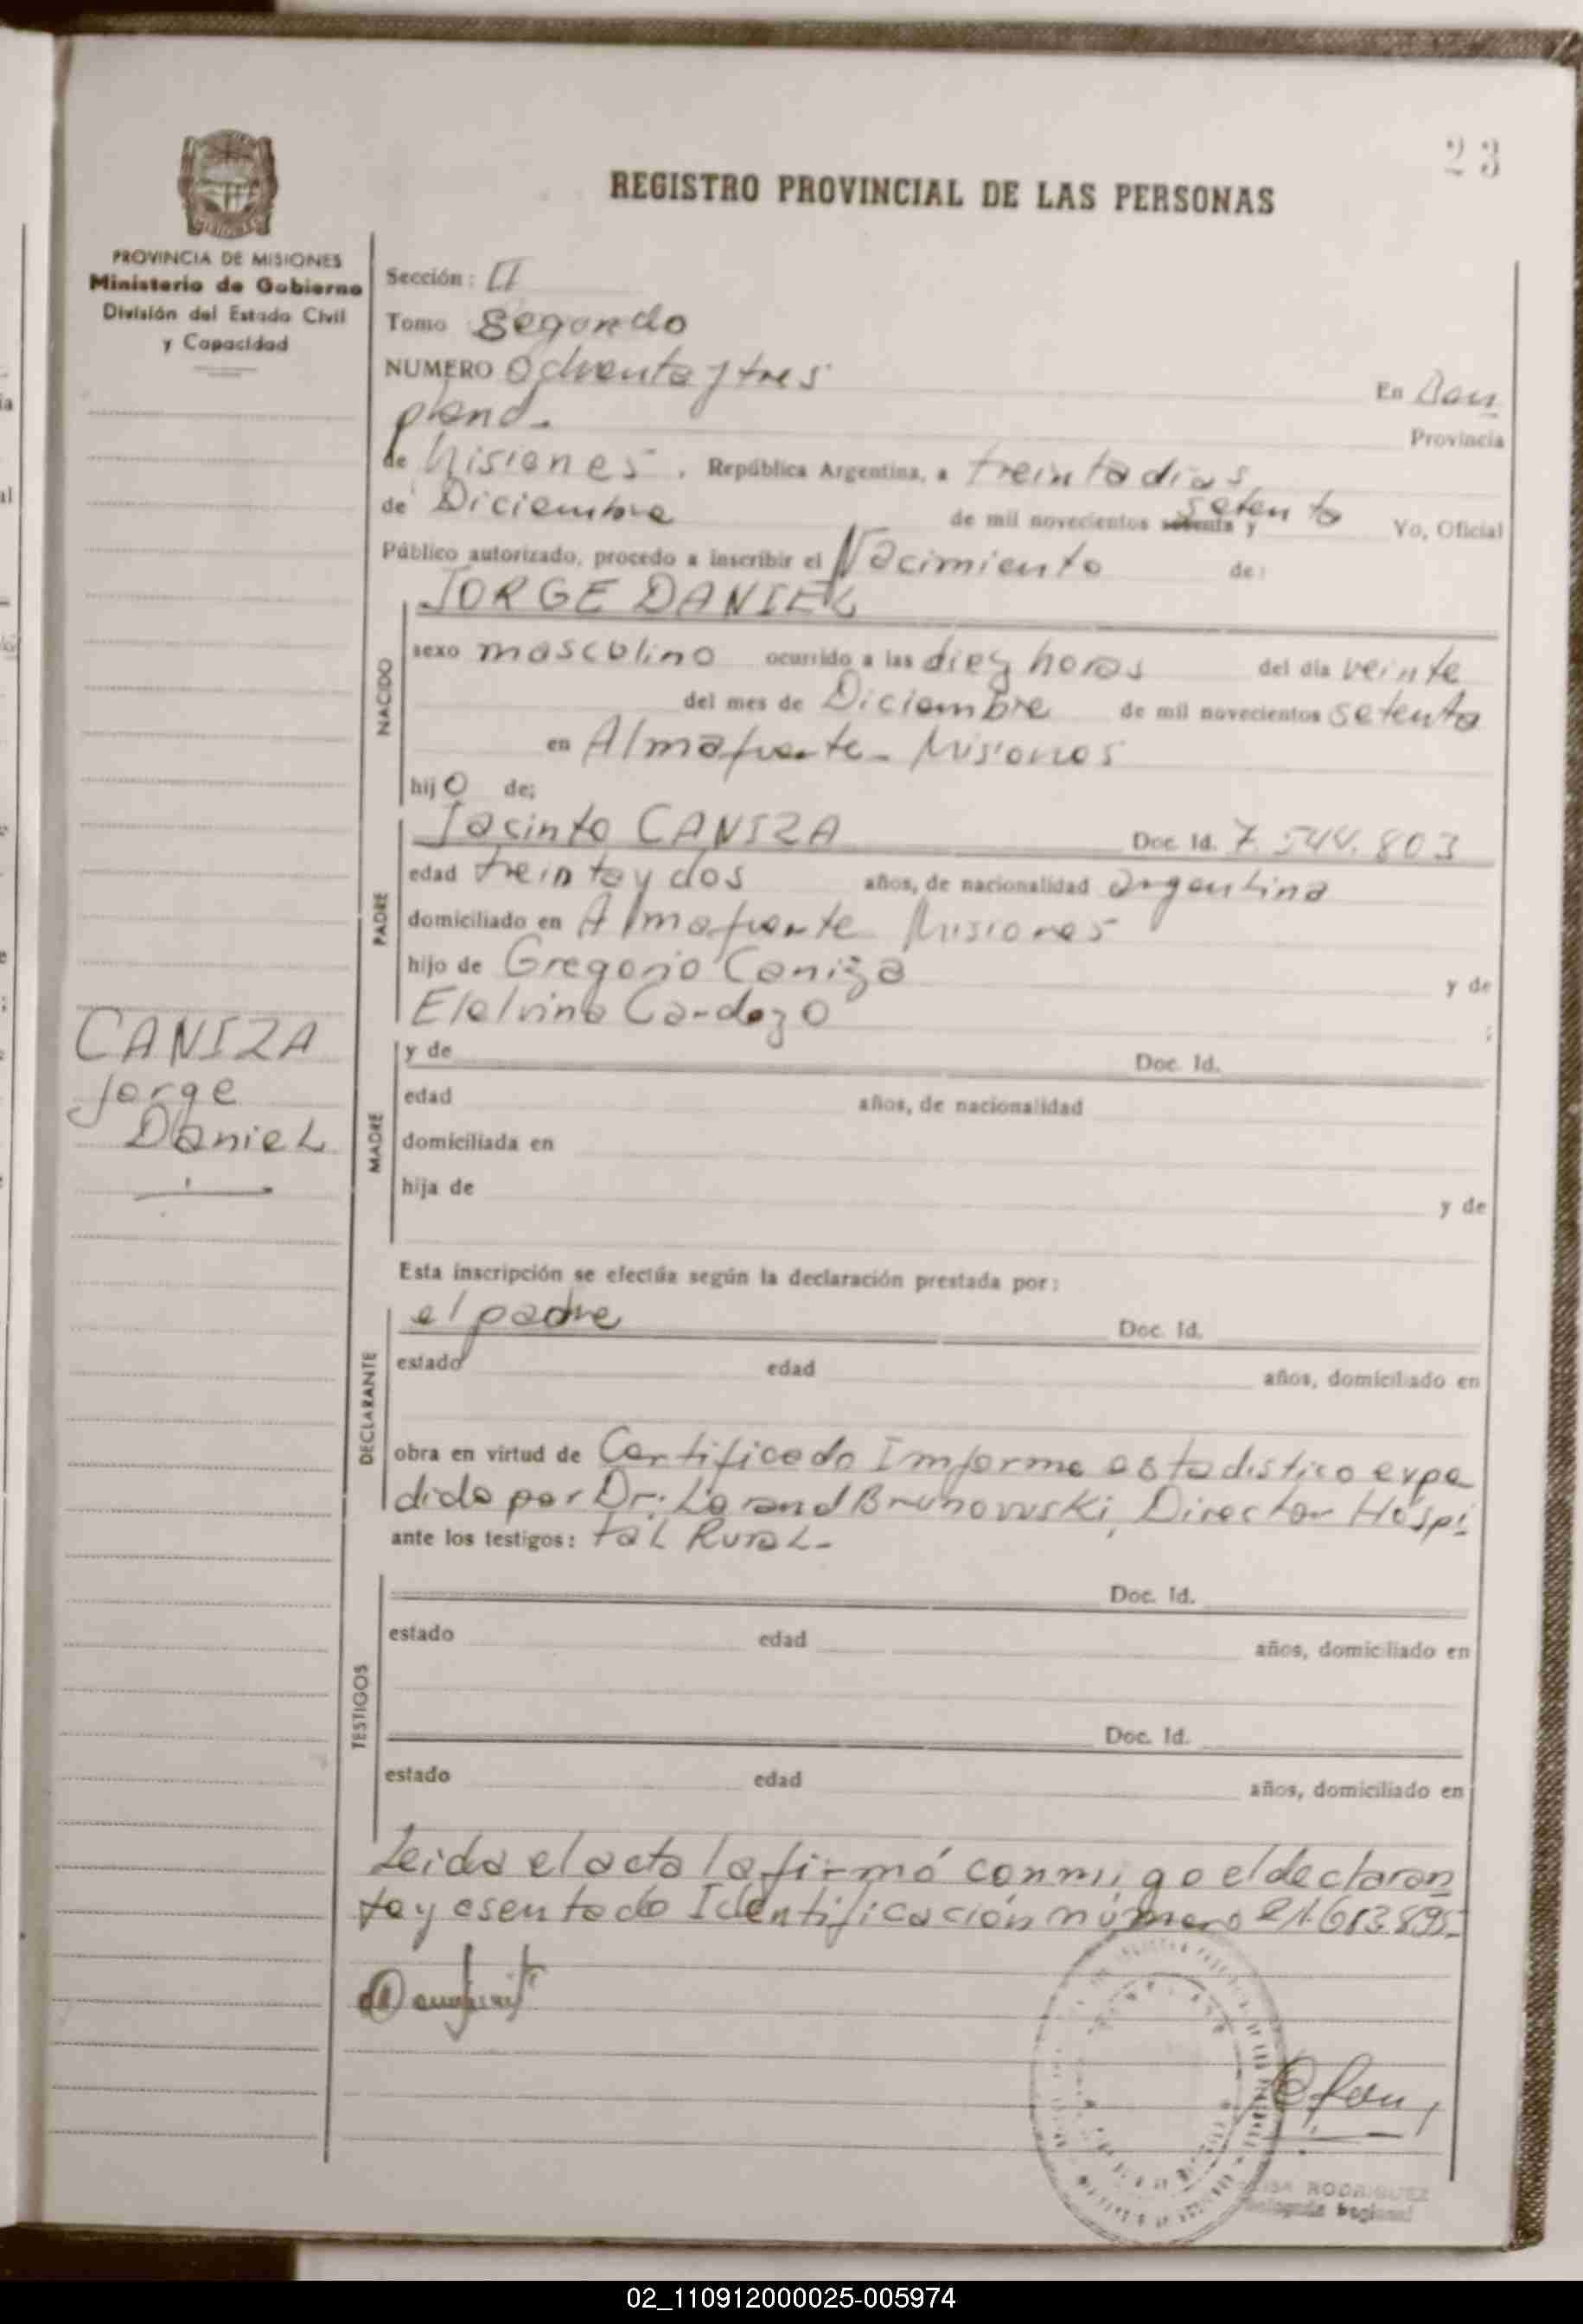 23
REGISTRO PROVINCIAL DE LAS PERSONAS
PROVINCIA DE MISIONES
Ministerio de Gobierno
División del Estado Civil
y Capacidad
Sección: II
Tomo Segundo
NUMERO Ochenta y tres En Bon
pland.- Provincia
de Misiones. República Argentina, a treinta dias
de Diciembre de mil novecientos setenta y setenta Yo, Oficial
Público autorizado, procedo a inscribir el Nacimiento de:
JORGE DANIEL
NACIDO
sexo masculino ocurrido a las diez horas del día veinte
del mes de Diciembre de mil novecientos setenta
en Almafuerte - Misiones
hijo de:
PADRE
Jacinto CANIZA Doc. Id. 7.544.803
edad treinta y dos años, de nacionalidad argentina
domiciliado en Almafuerte Misiones
hijo de Gregorio Caniza y de
Etelvina Cardozo ;
CANIZA
Jorge
Daniel
MADRE
y de Doc. Id.
edad años, de nacionalidad
domiciliada en
hija de y de
Esta inscripción se efectúa según la declaración prestada por:
DECLARANTE
el padre Doc. Id.
estado edad años, domiciliado en
obra en virtud de Certificado Imforme estadistico expe
dido por Dr. Brunowski, Director Hospi
ante los testigos: tal Rural-
TESTIGOS
Doc. Id.
estado edad años, domiciliado en
Doc. Id.
estado edad años, domiciliado en
Leida el acta la firmó conmigo el declaran
te y esentado Identificación número 21.613.895-
RODRIGUEZ
Delegada Regional
02_110912000025-005974